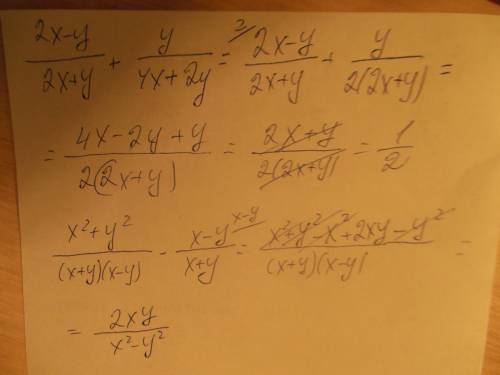 (2x-y)/(2x+y) + y/(4x+2y) = 2/ (2x-y)/(2x+y) + y/(2(2x+y)) =
= (4x-2y+y)/(2(2x+y)) = (2x+y)/(2(2x+y)) = 1/2
(x²+y²)/((x+y)(x-y)) - (x-y)/(x+y) /x-y = (x²+y²-x²+2xy-y²)/((x+y)(x-y)) =
= 2xy/(x²-y²)